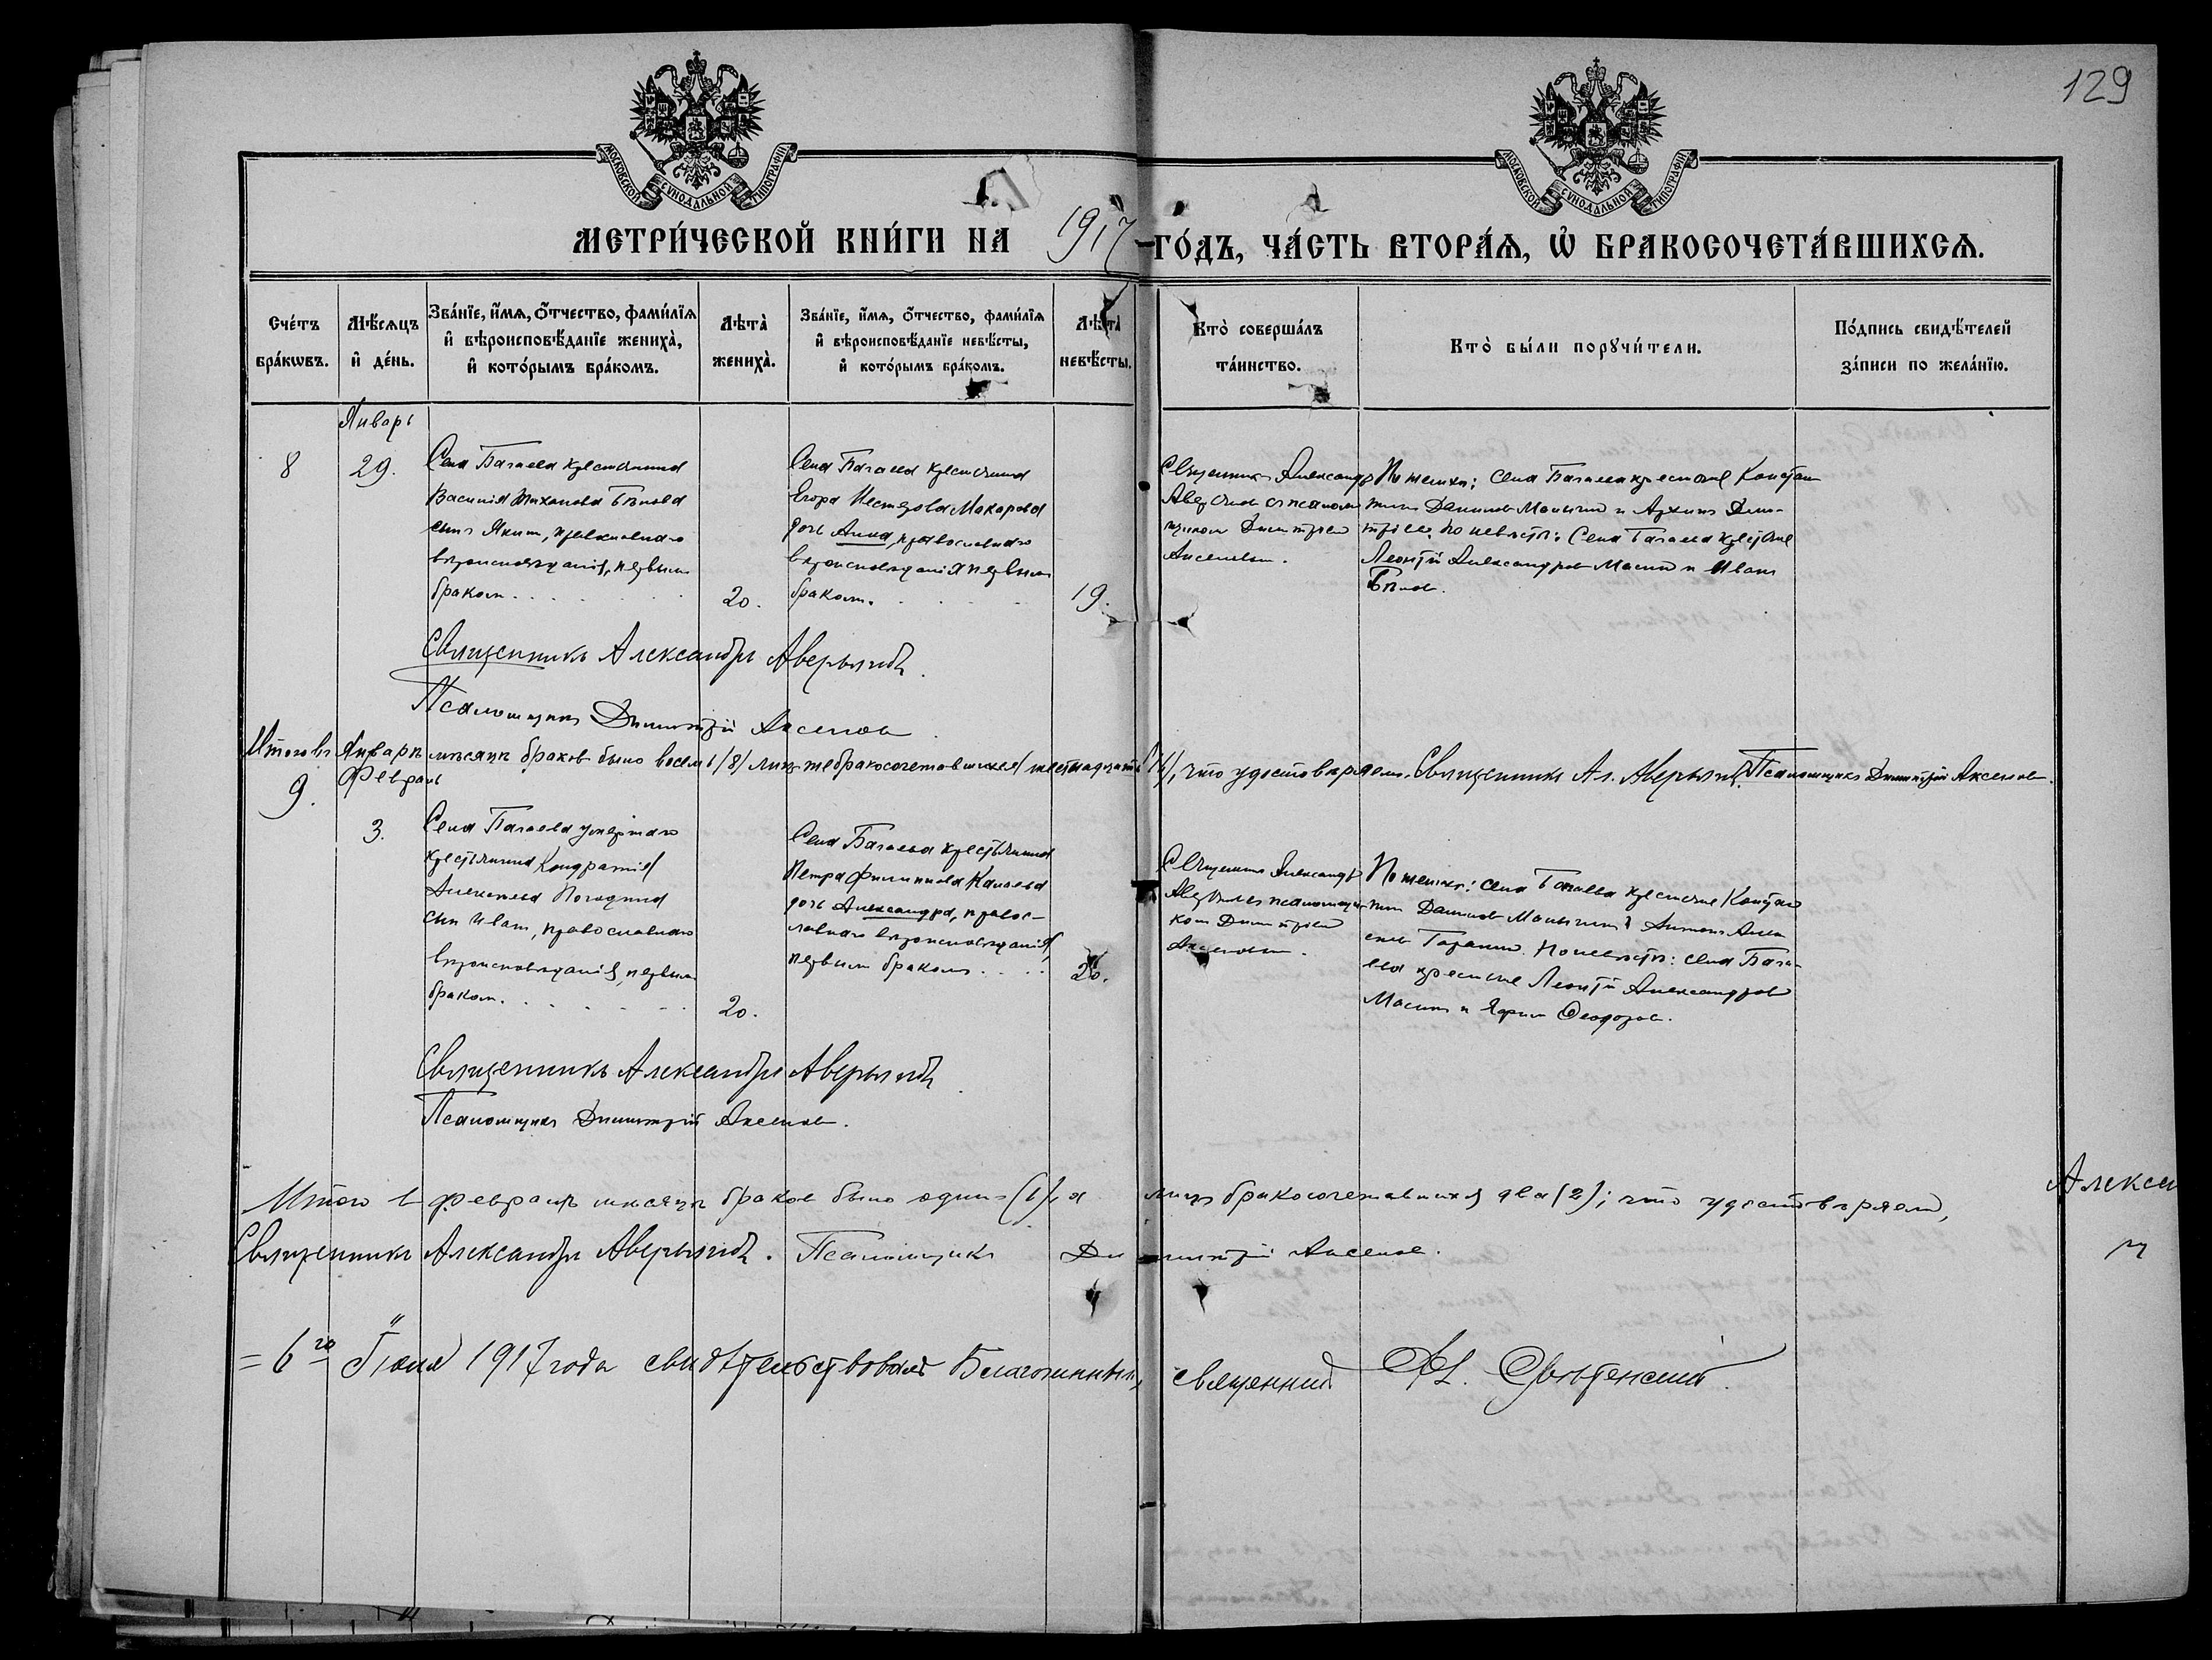 129
МОСКОВСКОЙ СУНОДАЛЬНОЙ ТИПОГРАФІИ
МОСКОВСКОЙ СУНОДАЛЬНОЙ ТИПОГРАФІИ
МЕТРИ́ЧЕСКОЙ КНИ́ГИ НА 1917 ГО́ДЪ, ЧА́СТЬ ВТОРА́Ѧ, Ѽ БРАКОСОЧЕТА́ВШИХСѦ.
Сче́тъ
бра́кѡвъ.
Мѣ́сѧцъ
и҆ де́нь.
Зва́нїе, и҆́мѧ, ѻ҆́тчество, фами́лїѧ
и҆ вѣроисповѣ́данїе жениха̀,
и҆ кото́рымъ бра́комъ.
Лѣта̀
жениха̀.
Зва́нїе, и҆́мѧ, ѻ҆́тчество, фами́лїѧ
и҆ вѣроисповѣ́данїе невѣ́сты,
и҆ кото́рымъ бра́комъ.
Лѣта̀
невѣ́сты.
Кто̀ соверша́лъ
та́инство.
Кто̀ бы́ли порꙋчи́тели.
По́дпись свидѣ́телей
за́писи по жела́нїю.
Январь
8
29.
Села Багаева крестьянина
Василія Тихонова Бѣлова
сынъ Яким, православнаго
вѣроисповѣданія, первым
браком.
20.
Села Багаева крестьянина
Егора Нестерова Макарова
дочь Анна, православнаго
вѣроисповѣданія первым
браком.
19.
Священник Александр
Аверьянов с псаломщиком Димитріем
Аксеновым.
По женихѣ: села Багаева крестьяне Констан
тин Данилов Малыгин и Архип Дми-
тріев; по невѣстѣ: Села Багаева крестьяне
Леонтій Александров Масин и Иван
Бѣлов.
Священникъ Александръ Аверьяновъ.
Псаломщикъ Димитрій Аксенов
Итого въ Январѣ мѣсяцѣ браков было восемь /8/ лиц же бракосочетавшихся шестнадцать (16), что удостовѣряем. Священникъ Ал. Аверьяновъ. Псаломщикъ Димитрій Аксенов.
Февраль
9.
3.
Села Багаева умершаго
крестьянина Кондратія
Алексеева Погодина
сын Иван, православнаго
вѣроисповѣданія, первым
браком.
20.
Села Багаева крестьянина
Петра Филиппова Канаева
дочь Александра, правос-
лавнаго вѣроисповѣданія,
первым браком.
20.
Священник Александр
Аверьянов с псаломщи-
ком Димитріем
Аксеновым.
По женихѣ: села Багаева крестьяне Констан
тин Данилов Малыгин и Антон Алек
сеев Гаранин. По невѣстѣ: села Бага-
ева крестьяне Леонтій Александров
Масин и Ефим Ѳеодоров.
Священникъ Александръ Аверьяновъ
Псаломщикъ Димитрій Аксенов.
Итого в февралѣ мѣсяцѣ браков было один (1), а лиц бракосочетавшихся два (2); что удостовѣряем,
Алексан
Священникъ Александръ Аверьяновъ. Псаломщикъ Димитрій Аксенов.
= 6го Іюня 1917 года свидѣтельствовалъ Благочинный, священникъ